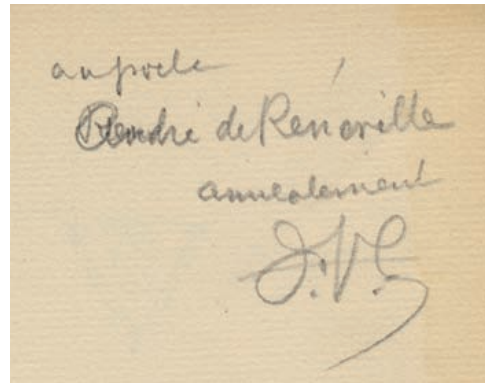 au poète
André de Renéville
amicalement
J.V.